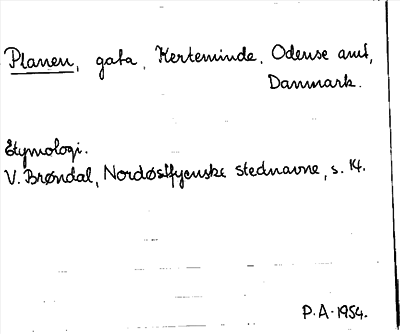 Planen, gata, Kerteminde, Odense amt,
Danmark.
Etymologi.
V. Brøndal, Nordøstfyenske stednavne, s. 14.
P.A. 1954.